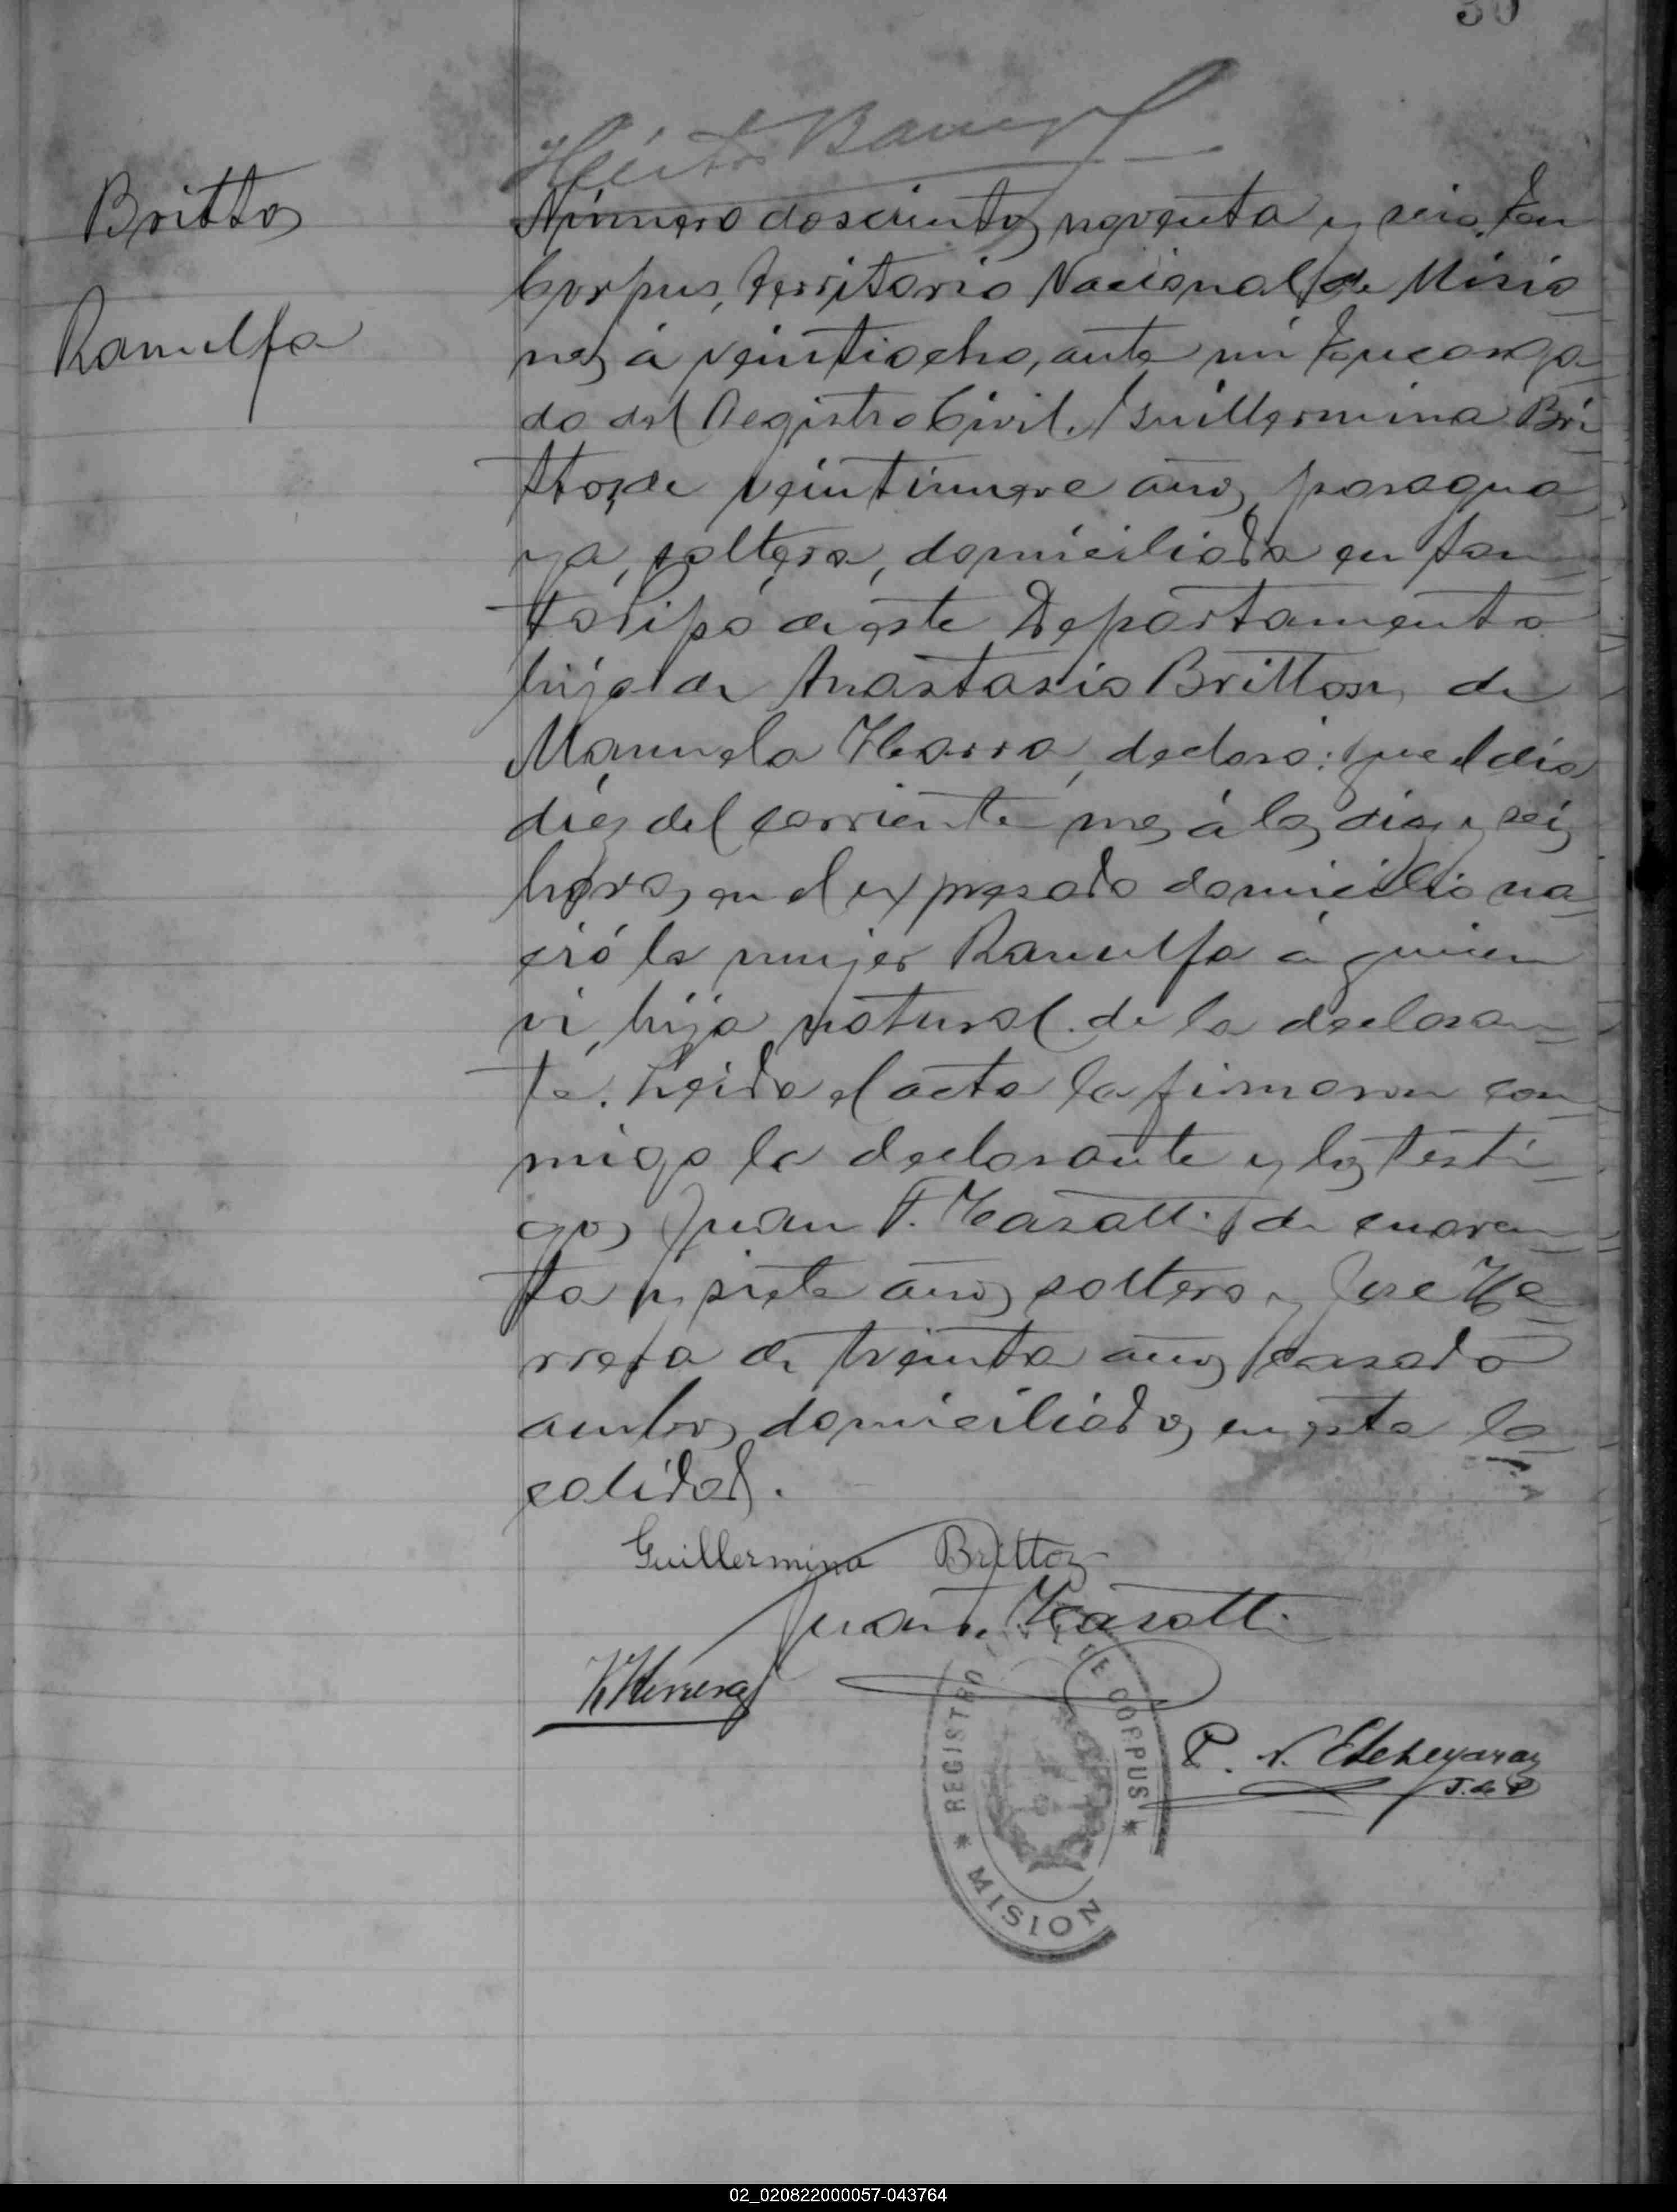 30
Brittos
Ranulfa
Número doscientos noventa y seis. En
Corpus, Territorio Nacional de Misio
nes á veintiocho, ante mí Encarga
do del Registro Civil, Guillermina Bri
ttos, de veintinueve años, paragua
ya, soltera, domiciliada en San
de este Departamento
hija de Anastasio Brittos y de
Manuela Ibarra, declaró: que el día
diez del corriente mes á las diez y seis
horas, en el expresado domicilio na
ció la mujer Ranulfa á quien
ví, hija natural de la declaran
te. Leida el acta la firmaron con
migo la declarante y los testi
gos Juan F. Casatti de cuaren
ta y siete años, soltero y José He
rrera de treinta años, casado
ambos domiciliados en esta lo
calidad.
Guillermina Brittoz
Juan F. Casatti
Herrera
P. N. Etchegaray
J. de P
REGISTRO DE CORPUS * MISION *
02_020822000057-043764